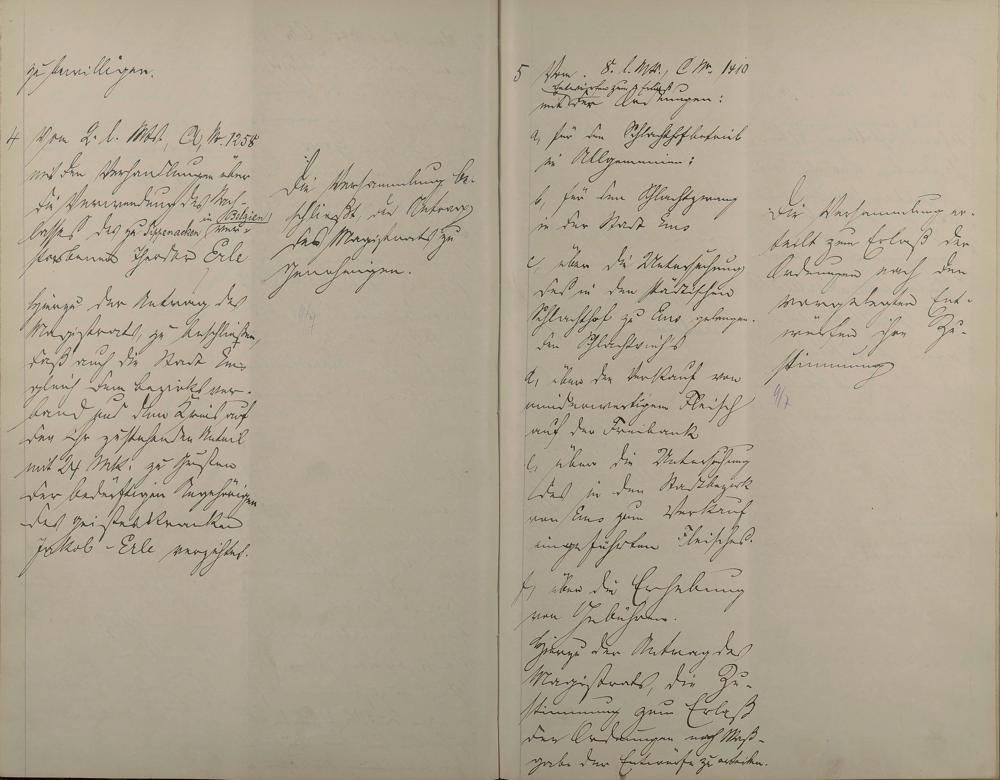 zu bewilligen.
4 Vom 2. l. Mts., CA, Nr. 1258
mit den Verhandlungen über
die Verwendung des Nach-
lasses des zu Tippenacken in Belgien ver-
storbenen Theodor Erle
Hierzu der Antrag des
Magistrats, zu beschließen,
daß auch die Stadt Ems
gleich dem Bezirksver-
band und dem Kreis auf
den ihr zustehenden Anteil
mit 24 Mk. zu Gunsten
der bedürftigen Angehörigen
des geisteskranken
Jakob Erle verzichtet.
Die Versammlung be-
schließt, den Antrag
des Magistrats zu
genehmigen.
5 Vom 8. l. Mts., C Nr. 1410
Entwürfen zum Erlaß
mit der Ordnungen:
a, für den Schlachthofbetrieb
im Allgemeinen;
b, für den Schlachtzwang
in der Stadt Ems
c, über die Untersuchung
des in den städtischen
Schlachthof zu Ems gelangen-
den Schlachtviehs
d, über den Verkauf von
minderwertigem Fleisch
auf der Freibank
e, über die Untersuchung
des in den Stadtbezirk
von Ems zum Verkauf
eingeführten Fleisches.
f, über die Erhebung
von Gebühren.
Hierzu der Antrag des
Magistrats, die Zu-
stimmung zum Erlaß
der Ordnungen nach Maß-
gabe der Entwürfe zu erteilen.
Die Versammlung er-
teilt zum Erlaß der
Ordnungen nach den
vorgelegten Ent-
würfen ihre Zu-
stimmung
9/7